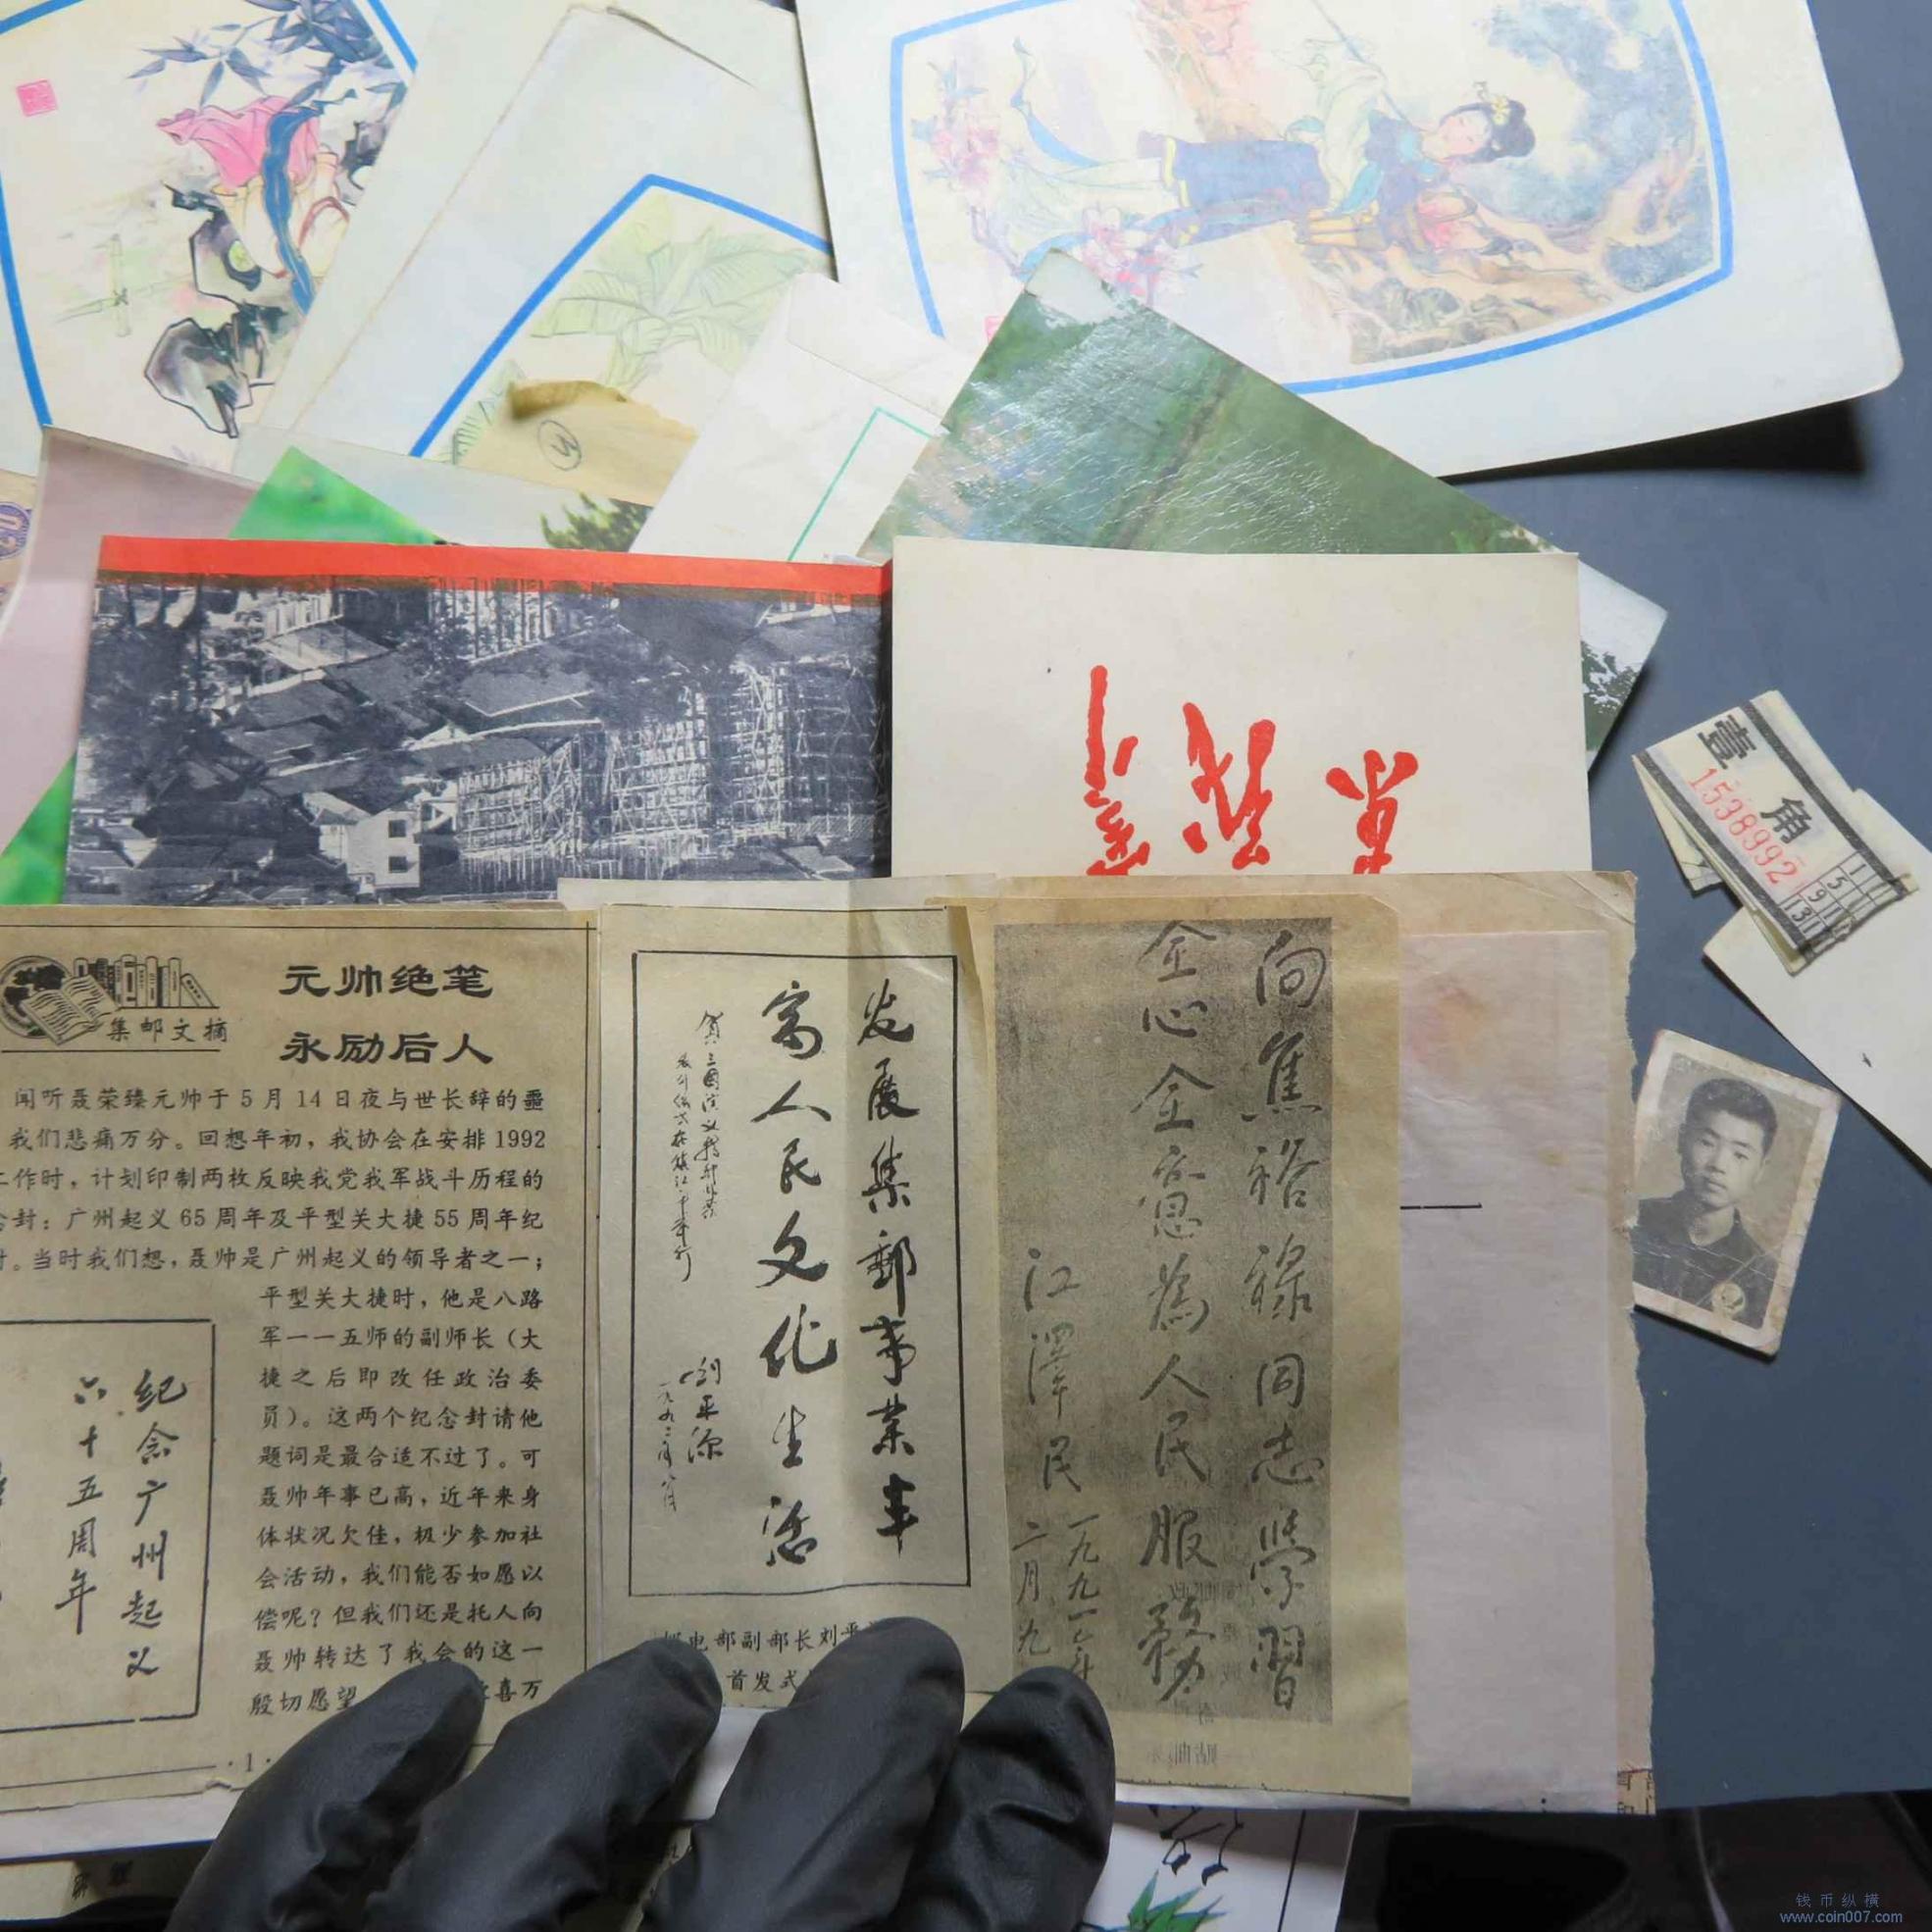 壹角
1538992
1
5
9
13
集邮文摘
元帅绝笔
永励后人
闻听聂荣臻元帅于5月14日夜与世长辞的噩
我们悲痛万分。回想年初，我协会在安排1992
工作时，计划印制两枚反映我党我军战斗历程的
念封：广州起义65周年及平型关大捷55周年纪
封。当时我们想，聂帅是广州起义的领导者之一；
平型关大捷时，他是八路
军一一五师的副师长（大
捷之后即改任政治委
员）。这两个纪念封请他
题词是最合适不过了。可
聂帅年事已高，近年来身
体状况欠佳，极少参加社
会活动，我们能否如愿以
偿呢？但我们还是托人向
聂帅转达了我会的这一
殷切愿望
喜万
纪念广州起义
六十五周年
·1·
发展集邮事业丰
富人民文化生活
贺三国演义特种邮票
发行仪式在镇江市举行
刘平源
邮电部副部长刘平
首发式
向焦裕禄同志学習
全心全意為人民服務
江澤民
一九九一年
二月九
钱币纵横
www.coin007.com